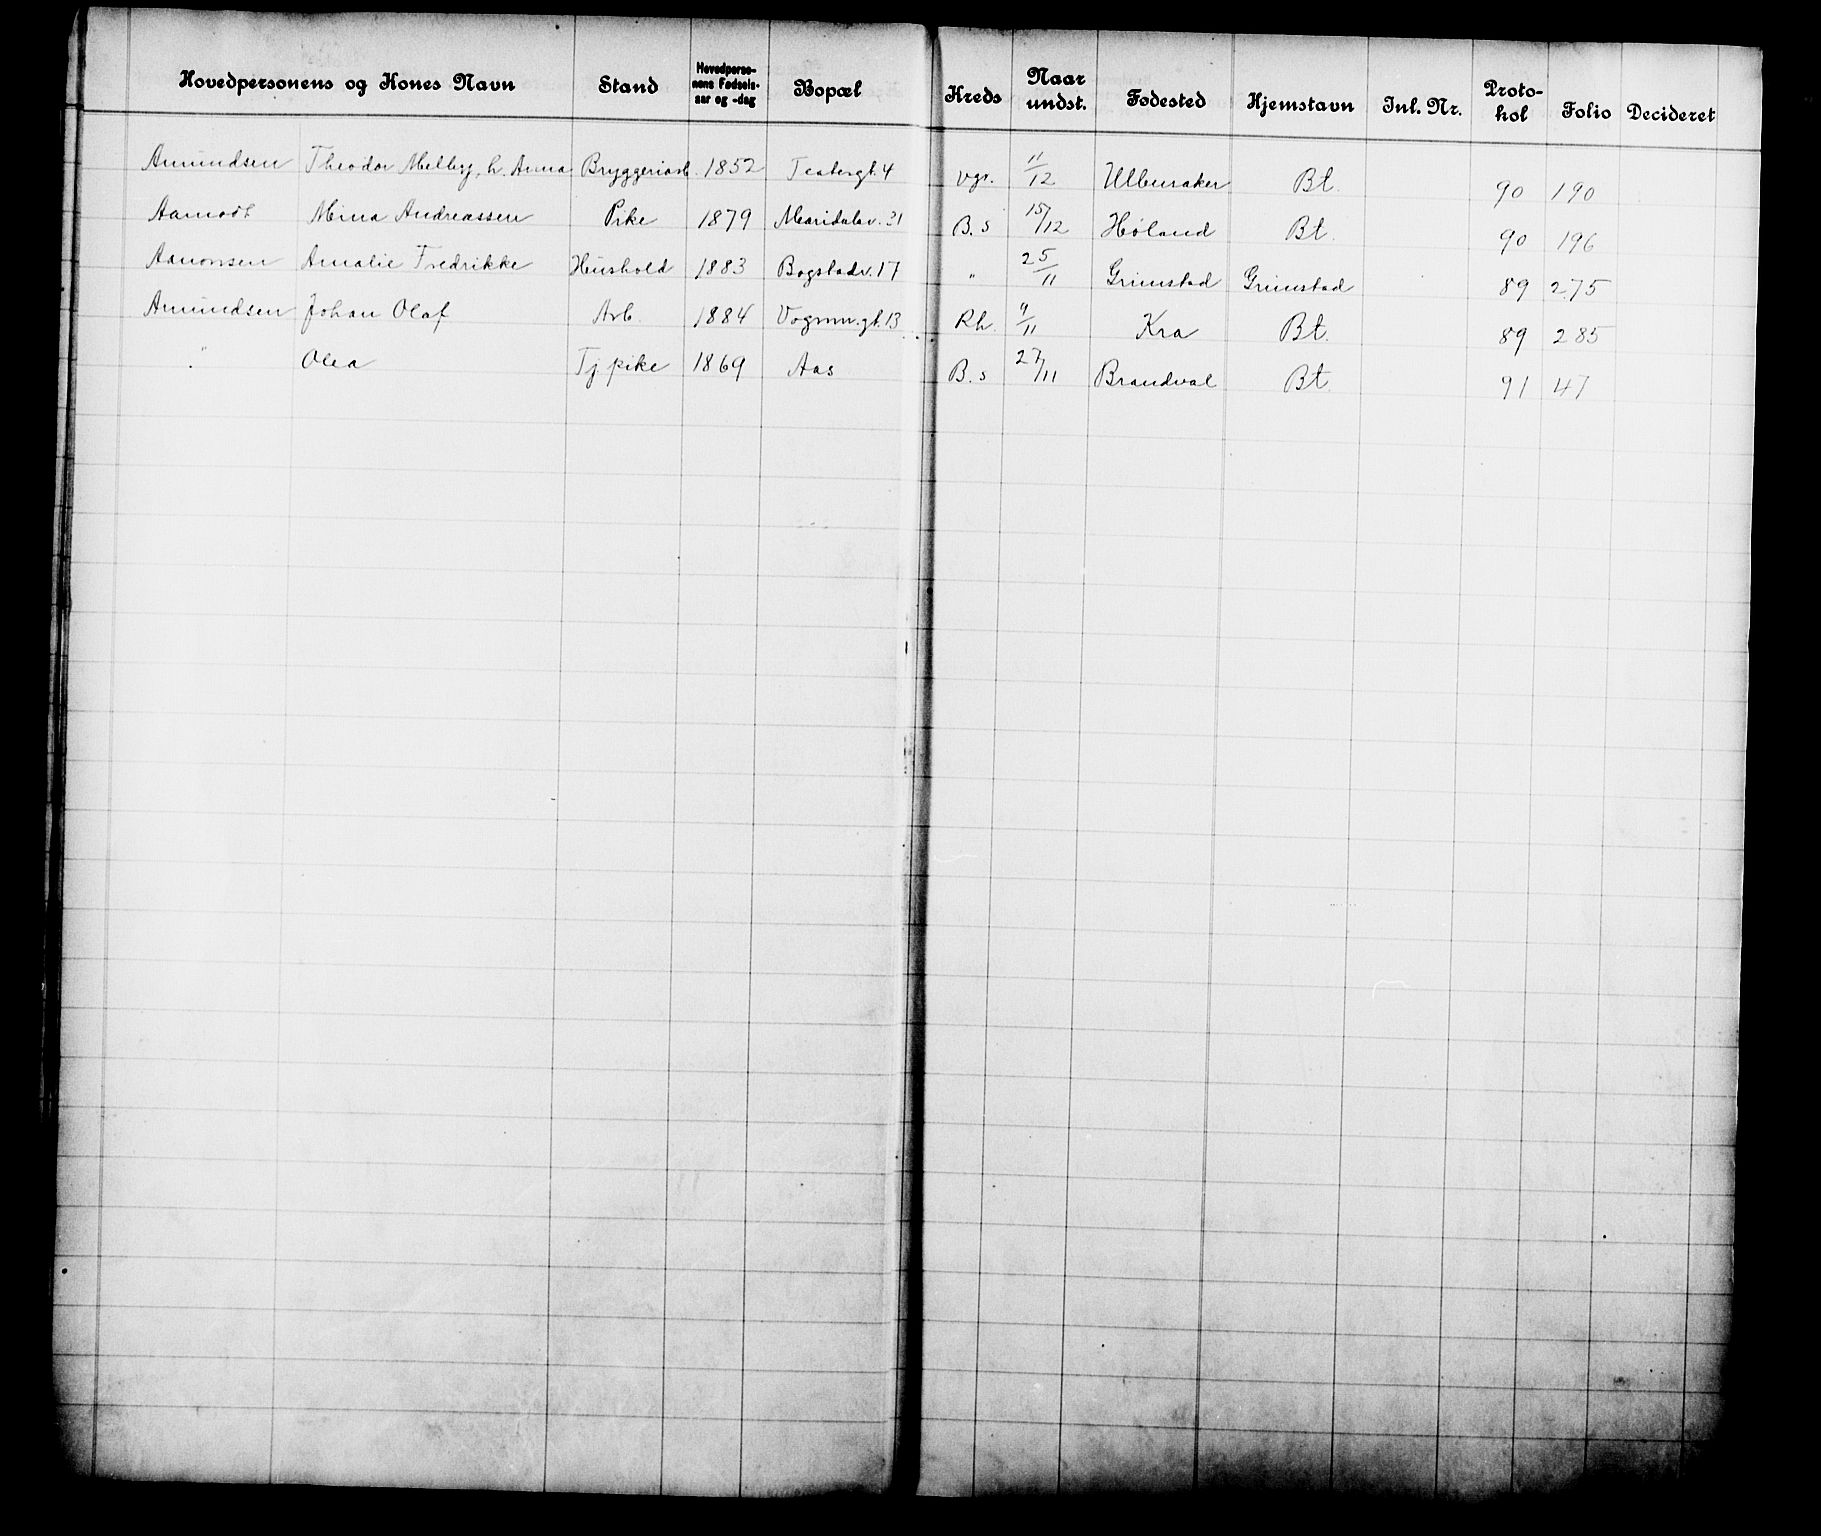 Hovedpersonens og Kones Navn Stand Hovedpersonens Fødselsaar og -dag Bopæl Kreds Naar undst. Fødested Hjemstavn Inl. Nr. Protokol Folio Decideret
Amundsen Theodor Melberg, h. Anna Bryggeriarb. 1852 Teatergt. 4 Vgr. 11/12 Ullensaker Bt. 90 190
Aamodt Mina Andreassen Pike 1879 Maridalsv. 31 B.s 15/12 Høland Bt. 90 196
Aanonsen Amalie Fredrikke Hushold 1883 Bogstadv. 17 " 25/11 Grimstad Grimstad 89 275
Amundsen Johan Olaf Arb. 1884 Vognm.gt. 13 Rh. 11/11 Kra Bt. 89 285
" Olea Tj. pike 1869 Aas B.s 27/11 Brandval Bt. 91 47